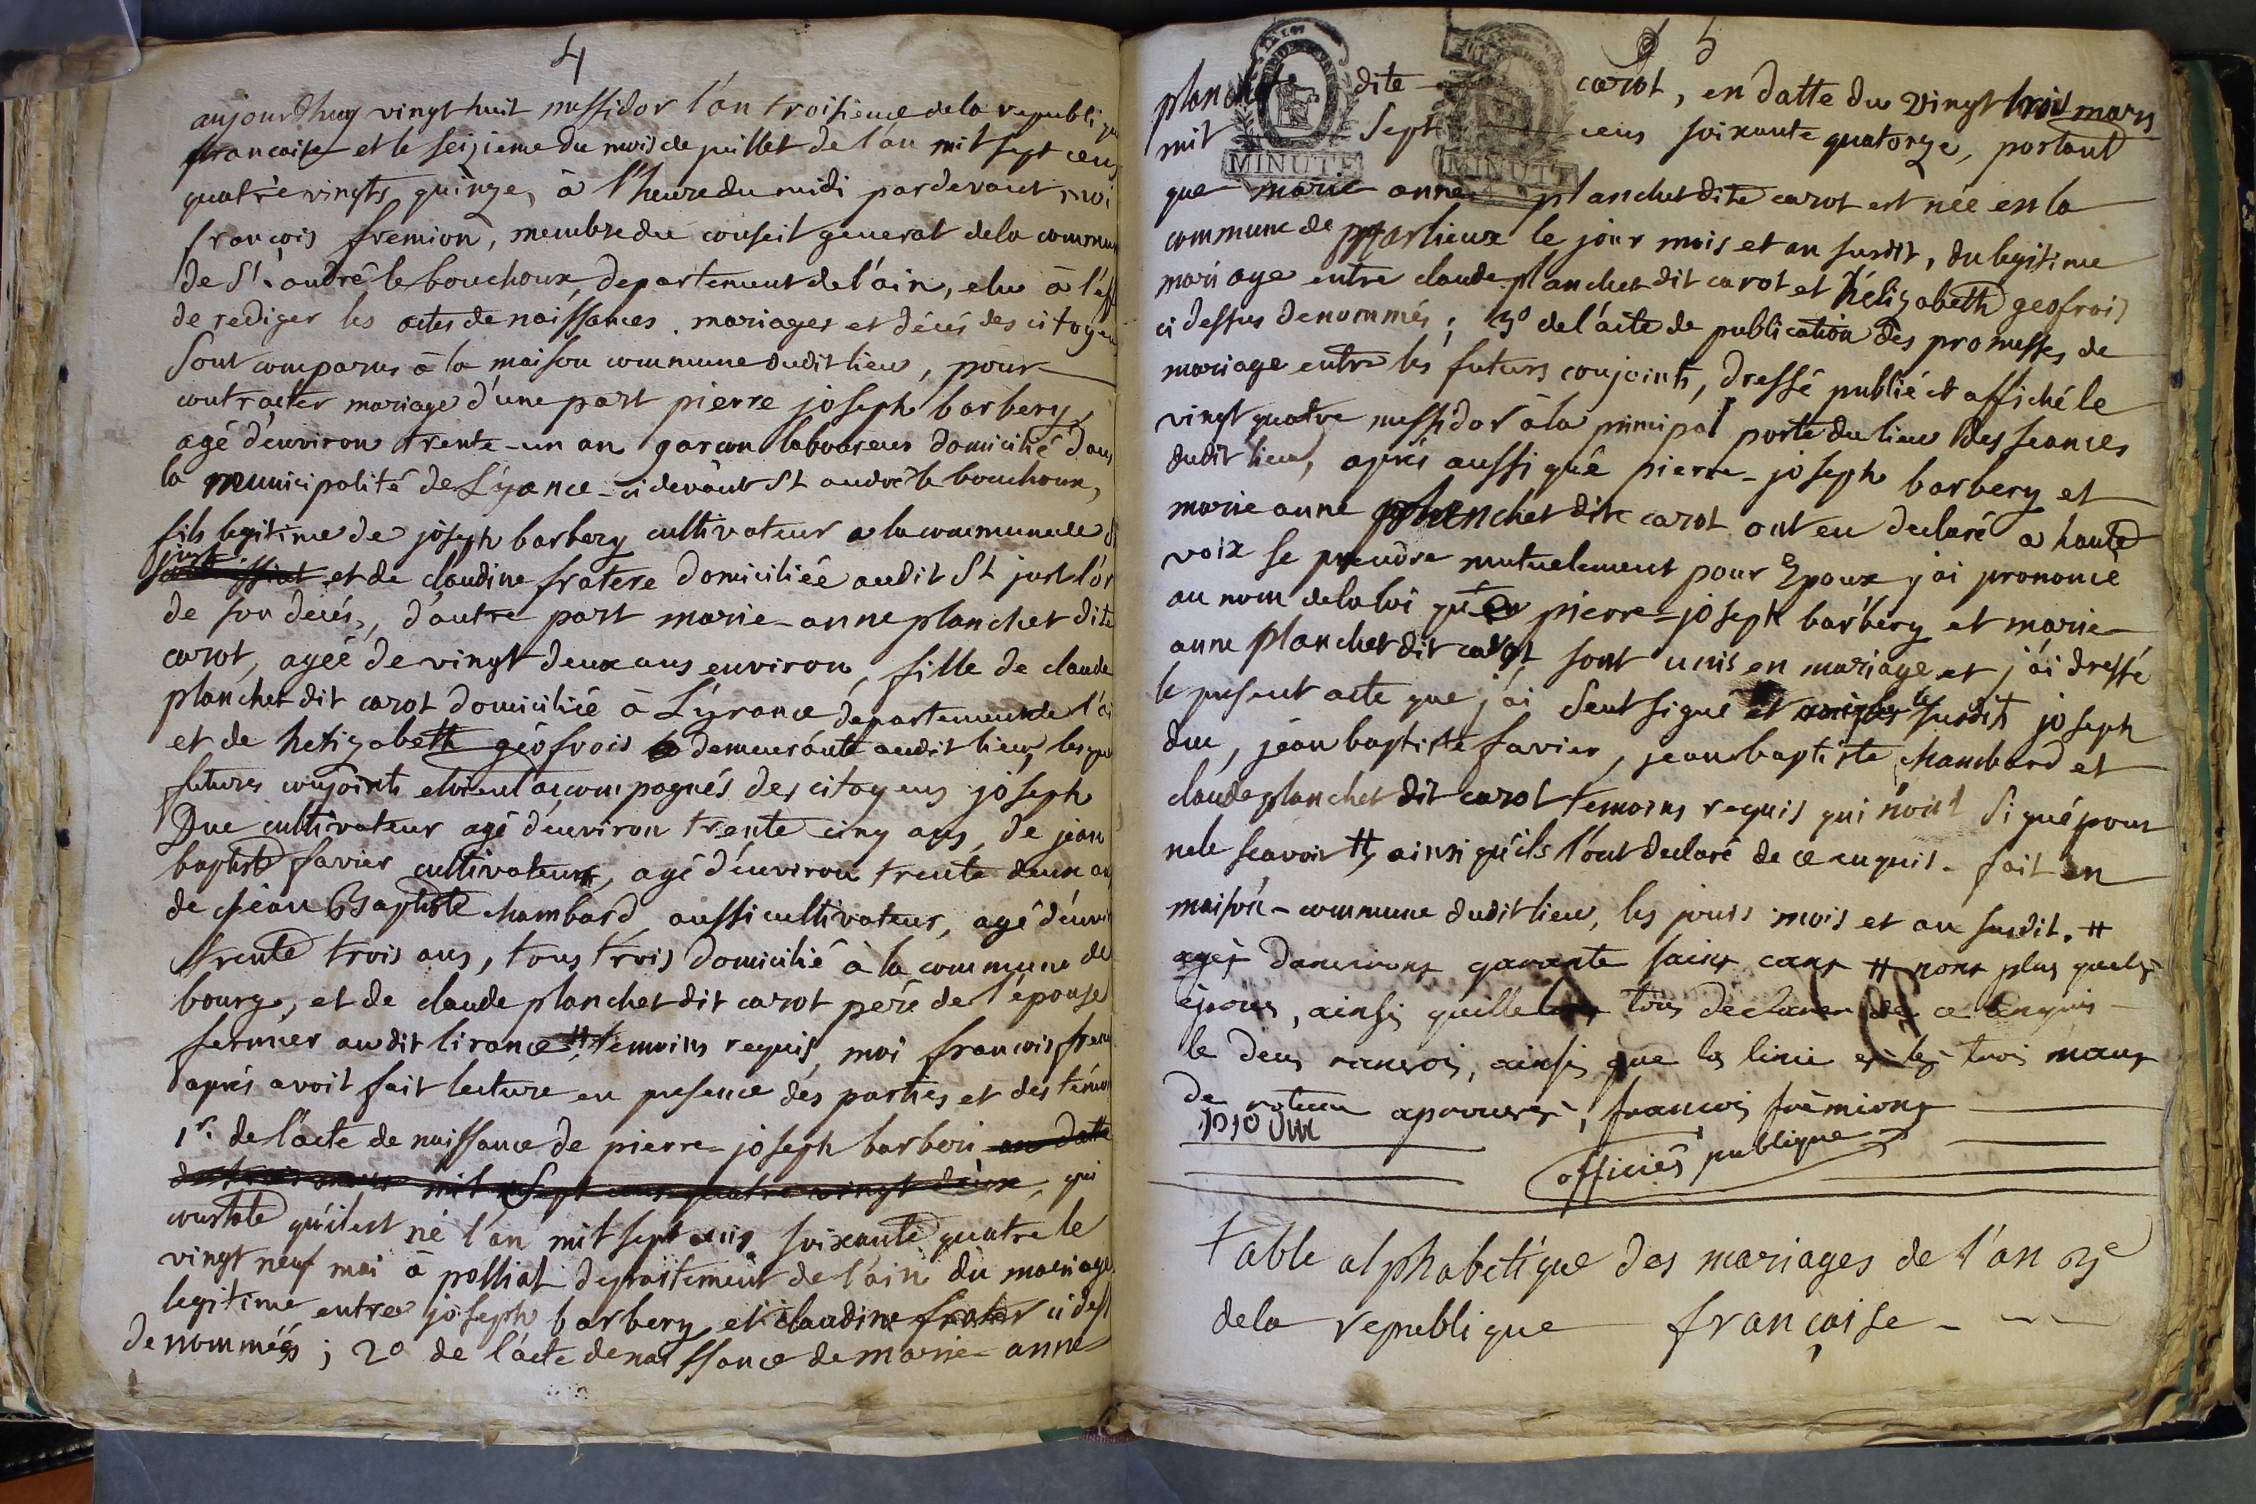 4
aujourdhuy vingt huit messidor l'an troisieme dela republique
francaise et le seizieme du mois de juillet de l'an mil sept cens
quatre vingts quinze, à l'heure du midi pardevant moi
francois fremion, membre du conseil general dela commun
de St. andré le bouchoux, departement de l'ain, elu à l'eff
de rediger les actes de naissances. mariages et décés des citoyen
sont comparus à la maison commune dudit lieu, pour
contracter mariage d'une part pierre joseph barbery,
agé d'environ trente-un an garcon laboureur domicilié dans
la municipalité de Lÿrance ci devant St andré le bouchoux,
fils legitime de joseph barbery cultivateur a la commune de St
just et de claudine fratere domiciliée audit St just lor
de son décés, d'autre part marie-anne planchet dite
carot, agée de vingt deux ans environ, fille de claude
planchet dit carot domicilié à Lÿrance departement de l'ai
et de helizabeth géofrois demeurante audit lieu, lesque
futures conjoints etoient accompagnés des citoyens joseph
Duc cultivateur agé d'environ trente cinq ans, de jean
baptiste favier cultivateur, agé d'environ trente deux an
de jean Baptiste chambard aussi cultivateur, agé d'envir
trente trois ans, tous trois domicilié à la commune de
bourg, et de claude planchet dit carot pere de l'épouse
fermier audit lirance # temoins requis, moi francois frem
aprés avoit fait lecture en presence des parties et des témoi
1r. de l'acte de naissance de pierre-joseph barberi en date
du trois mars mil sept cens quatre vingt deux, qui
constate qu'il est né l'an mil sept cens soixante quatre le
vingt neuf mai à polliat departement de l'ain du mariage
legitime entre joseph barbery et claudine frater ci dess
denommées; 2o de l'acte de naissance de marie-anne
5
MINUTE
MINUTE
planchet dite carot, en datte du vingt trois mars
mil sept cens soixante quatorze, portant
que marie anne planchet dite carot est née en la
commune de marlieux le jour mois et an susdit, du legitime
mariage entre claude planchet dit carot et hélizabeth geofrois
ci dessus denommés; 3o de l'acte de publication des promesses de
mariage entre les futurs conjoints, dressé publié et affiché le
vingt quatre messidor à la principal porte du lieu des seances
dudit lieu, aprés aussi que pierre-joseph barbery et
marie anne planchet dite carot ont eu declaré a haute
voix se prendre mutuelement pour Epoux j'ai prononcé
au nom dela loi que pierre-joseph barbery et marie-
anne planchet dit carot sont unis en mariage et j'ai dressé
le present acte que j'ai seul signé et les susdits joseph
duc, jean baptiste favier, jean baptiste chambard et
claude planchet dit carot temoins requis qui n'ont signé pour
ne le scavoir # ainsi qu'ils l'ont declaré de ce enquis. fait en
maison-commune dudit lieu, les jours mois et an susdit. #
agés danvirons quarante sainz # nons plus que les
épous, ainsi tous declarer de ce enquis
le deux ranvois, ainsi que la linie et les trois maux
de aprouvés, francois frèmions
jojo duc
officiés publique
table alphabetique des mariages de l'an 3e
dela republique françoise